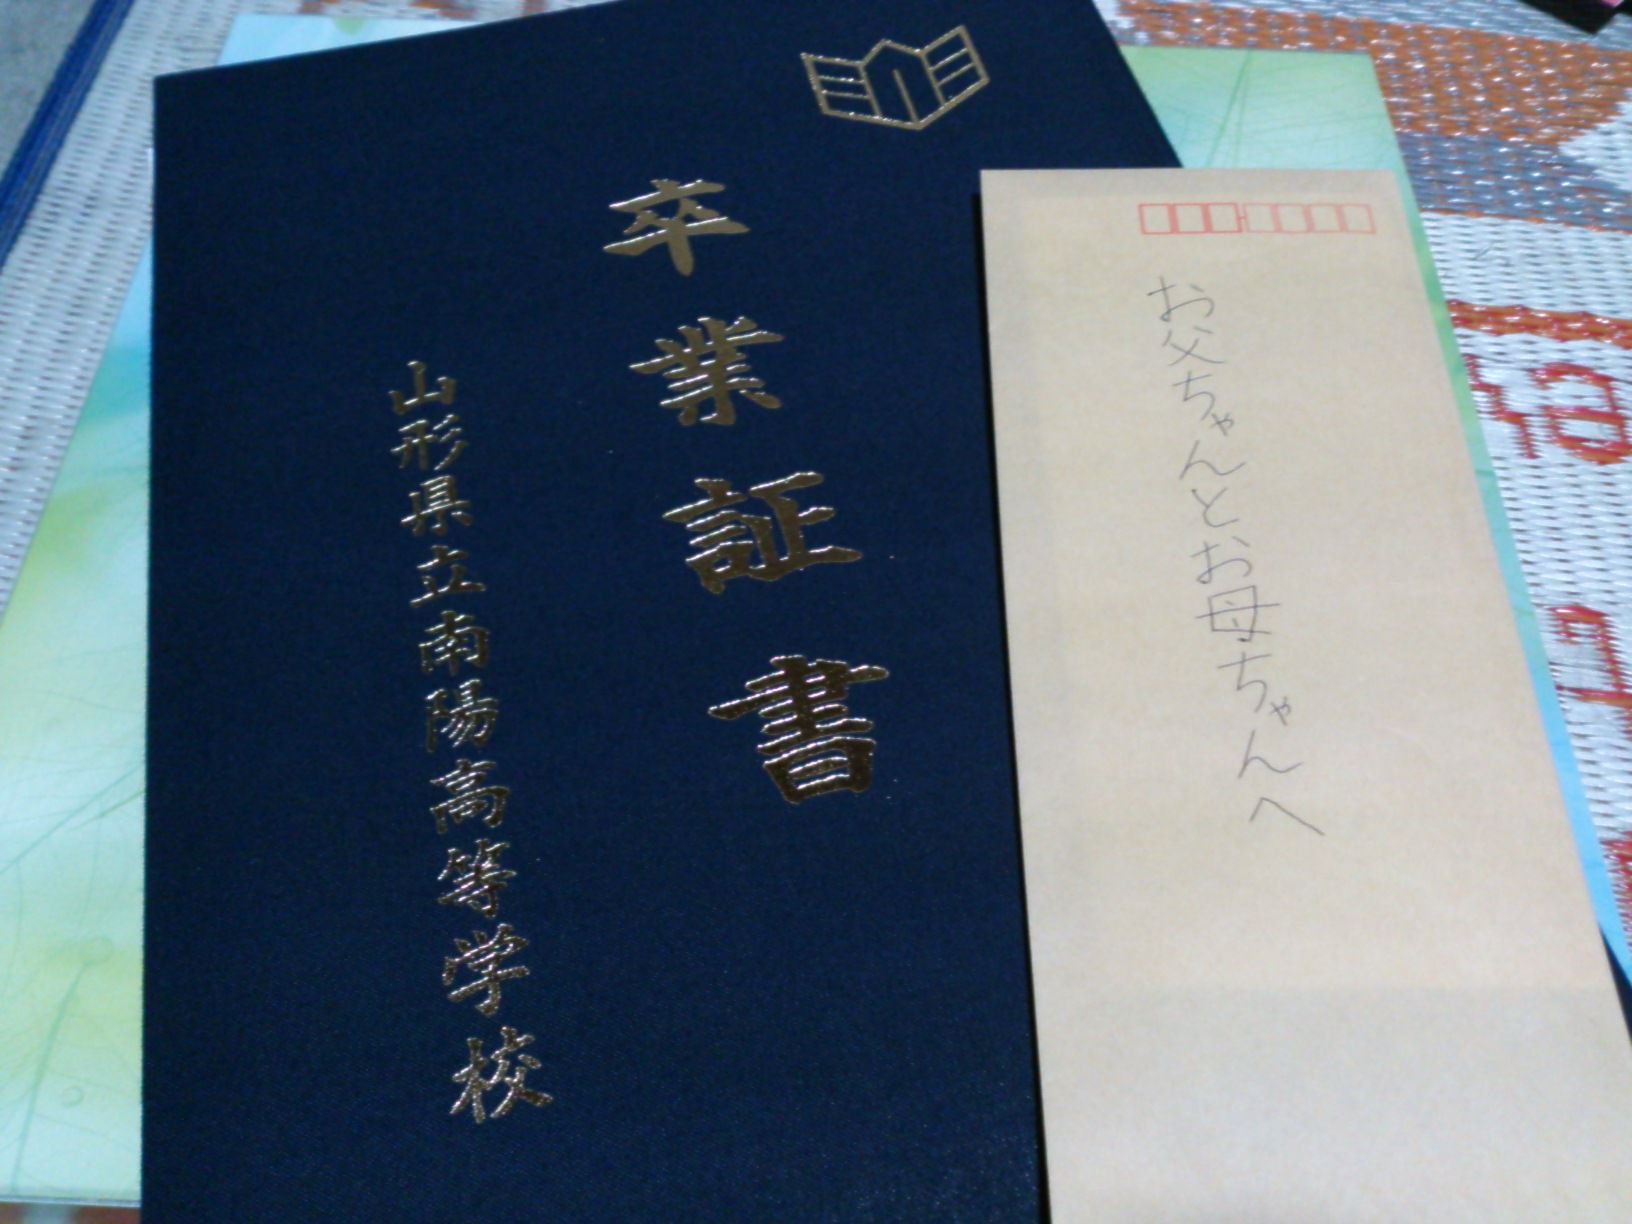 卒業証書
山形県立南陽高等学校
お父ちゃんとお母ちゃんへ